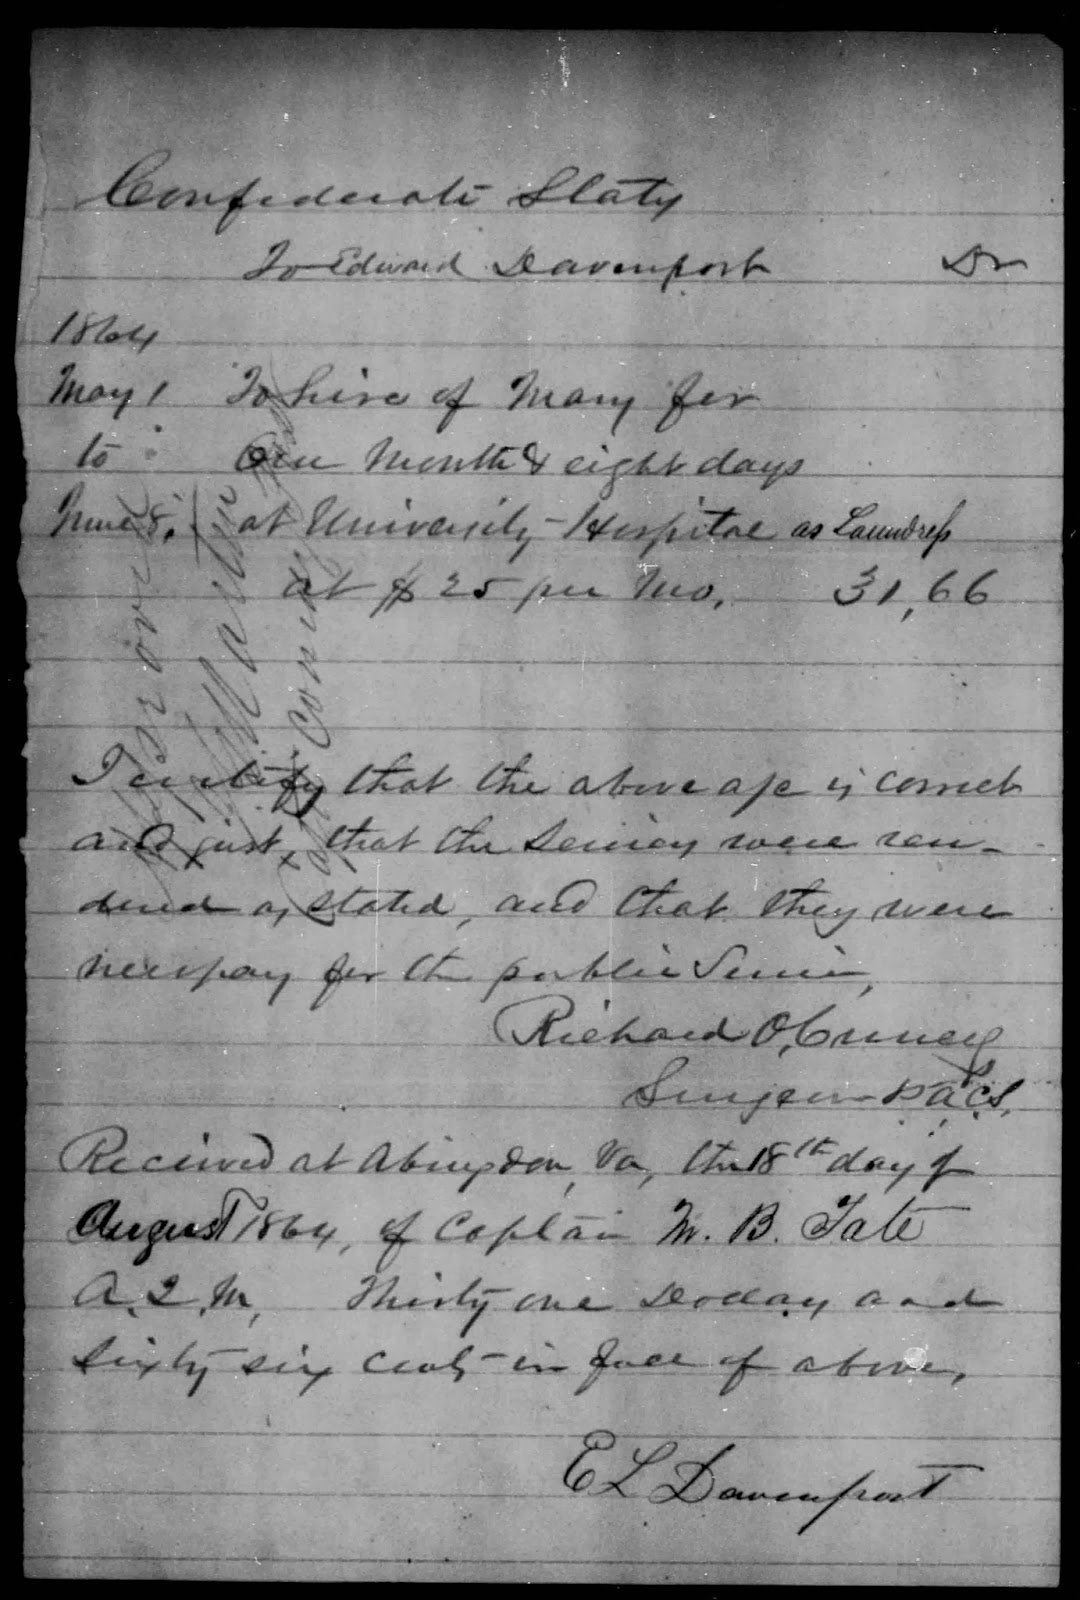 Confederate States
To Edward Davenport Dr
1864
May 1 To hire of Mary for
to One Month & eight days
June 8. at University Hospital as Laundress
at $25 per Mo. 31,66
Approved
I certify that the above a/c is correct
and just, that the services were ren-
dered as stated, and that they were
necessary for the public Service,
Richard O. Currey
Surgeon P.A.C.S.
Received at Abingdon, Va, the 18th day of
August 1864, of Captain M. B. Tate
A.Q.M, Thirty one Dollars and
Sixty six cents in full of above.
E L Davenport